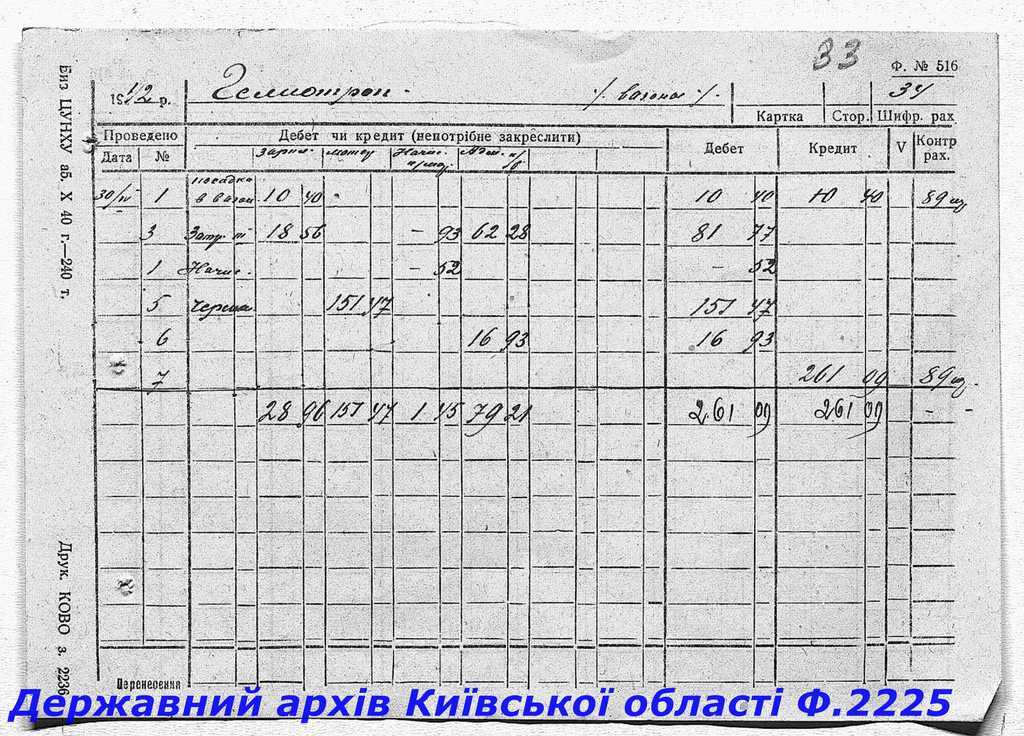 33
Ф. № 516
1942 р. Гелиотроп. /. вагона /. 34
Картка Стор. Шифр. рах
Проведено Дебет чи кредит (непотрібне закреслити) Дебет Кредит V Контр рах.
Дата №
30/IV 1 посадка в вагон 10 40 10 40 10 40 89
3 18 56 - 93 62 28 81 77
1 Начис. - 52 - 52
5 151 47 151 47
6 16 93 16 93
7 261 09 89
28 96 151 47 1 45 79 21 261 09 261 09 - -
Перенесення
Биз ЦУНХУ аб. X 40 г.—240 т.
Друк. КОВО з. 2236
Державний архів Київської області Ф.2225